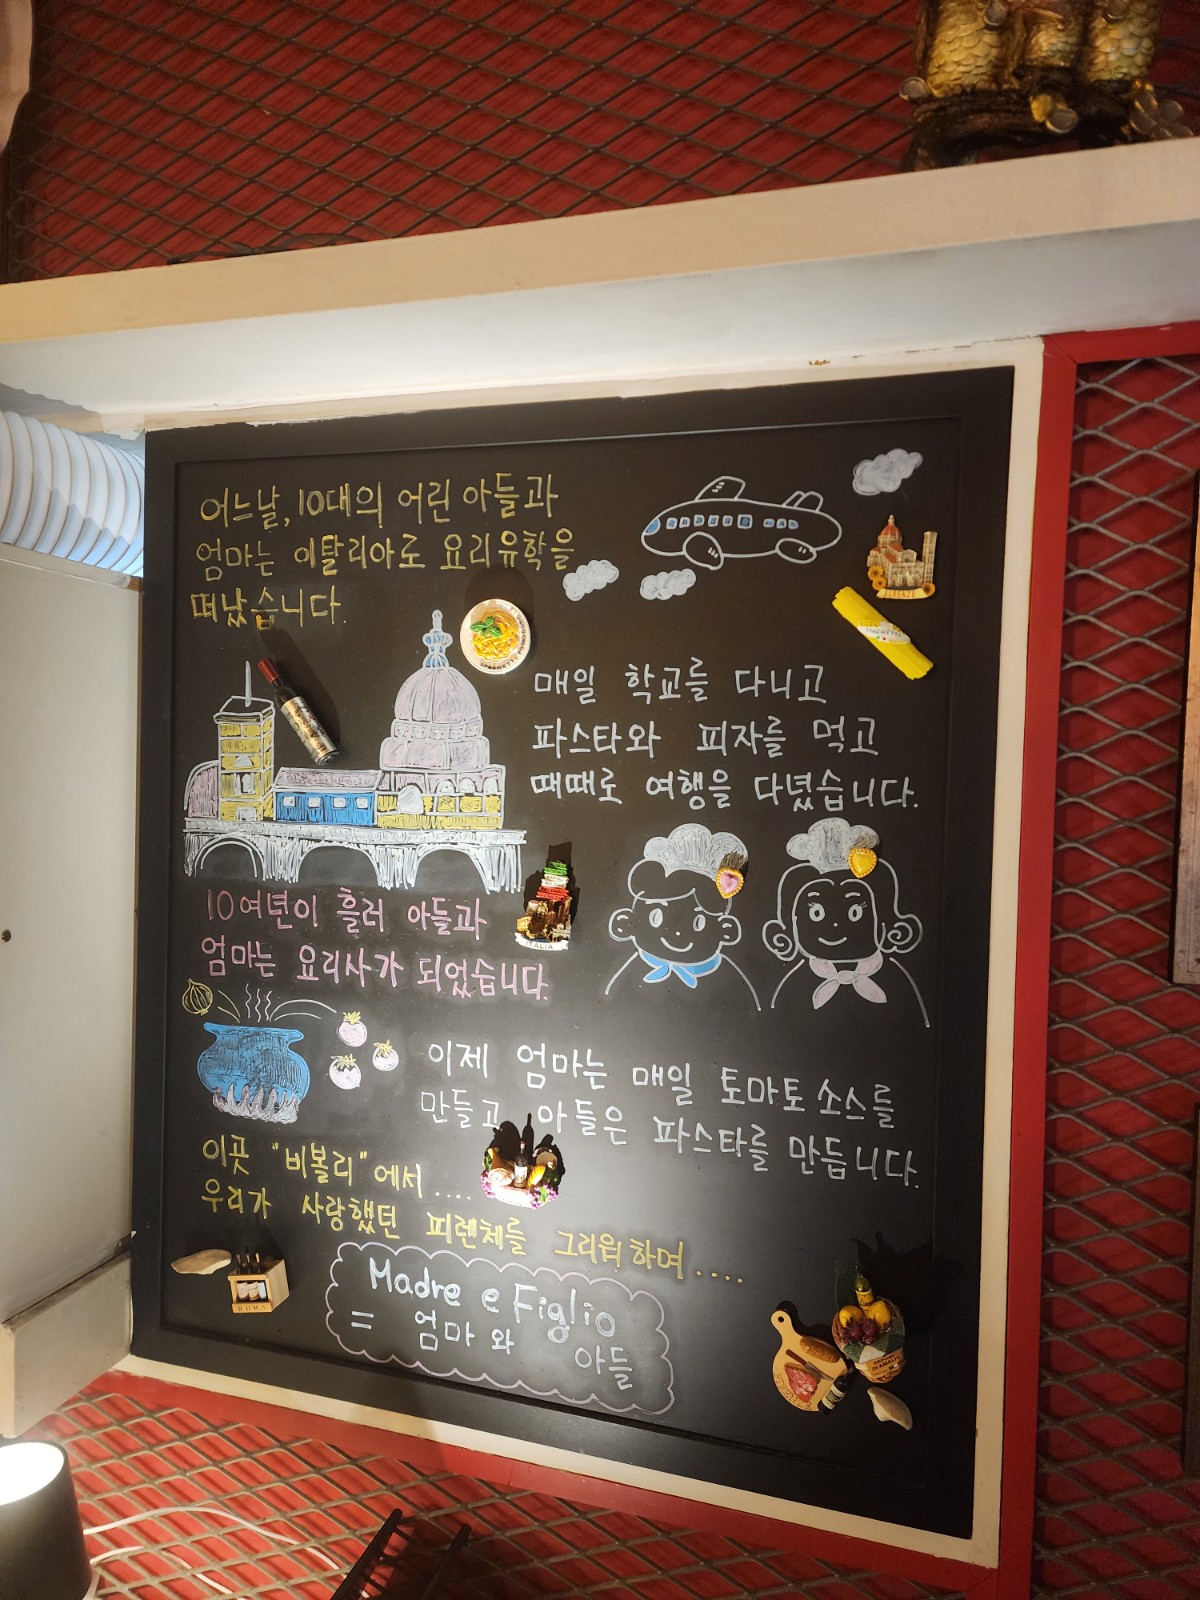 어느날, 10대의 어린 아들과
엄마는 이탈리아로 요리유학을
떠났습니다.
매일 학교를 다니고
파스타와 피자를 먹고
때때로 여행을 다녔습니다.
10여년이 흘러 아들과
엄마는 요리사가 되었습니다.
ITALIA
이제 엄마는 매일 토마토 소스를
만들고 아들은 파스타를 만듭니다.
이곳 "비볼리"에서....
우리가 사랑했던 피렌체를 그리워하며....
ROMA
Madre e Figlio
= 엄마와
아들